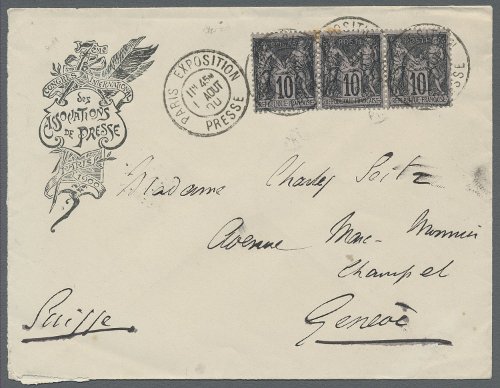 CONGRÈS INTERNATIONAL
des
ASSOCIATIONS
DE PRESSE
PARIS
1900
PARIS EXPOSITION
11 45
1 AOUT
00
PRESSE
10 10 10
Madame Charles Seitz
Avenue Marc-Monnier
Champel
Genève
Suisse